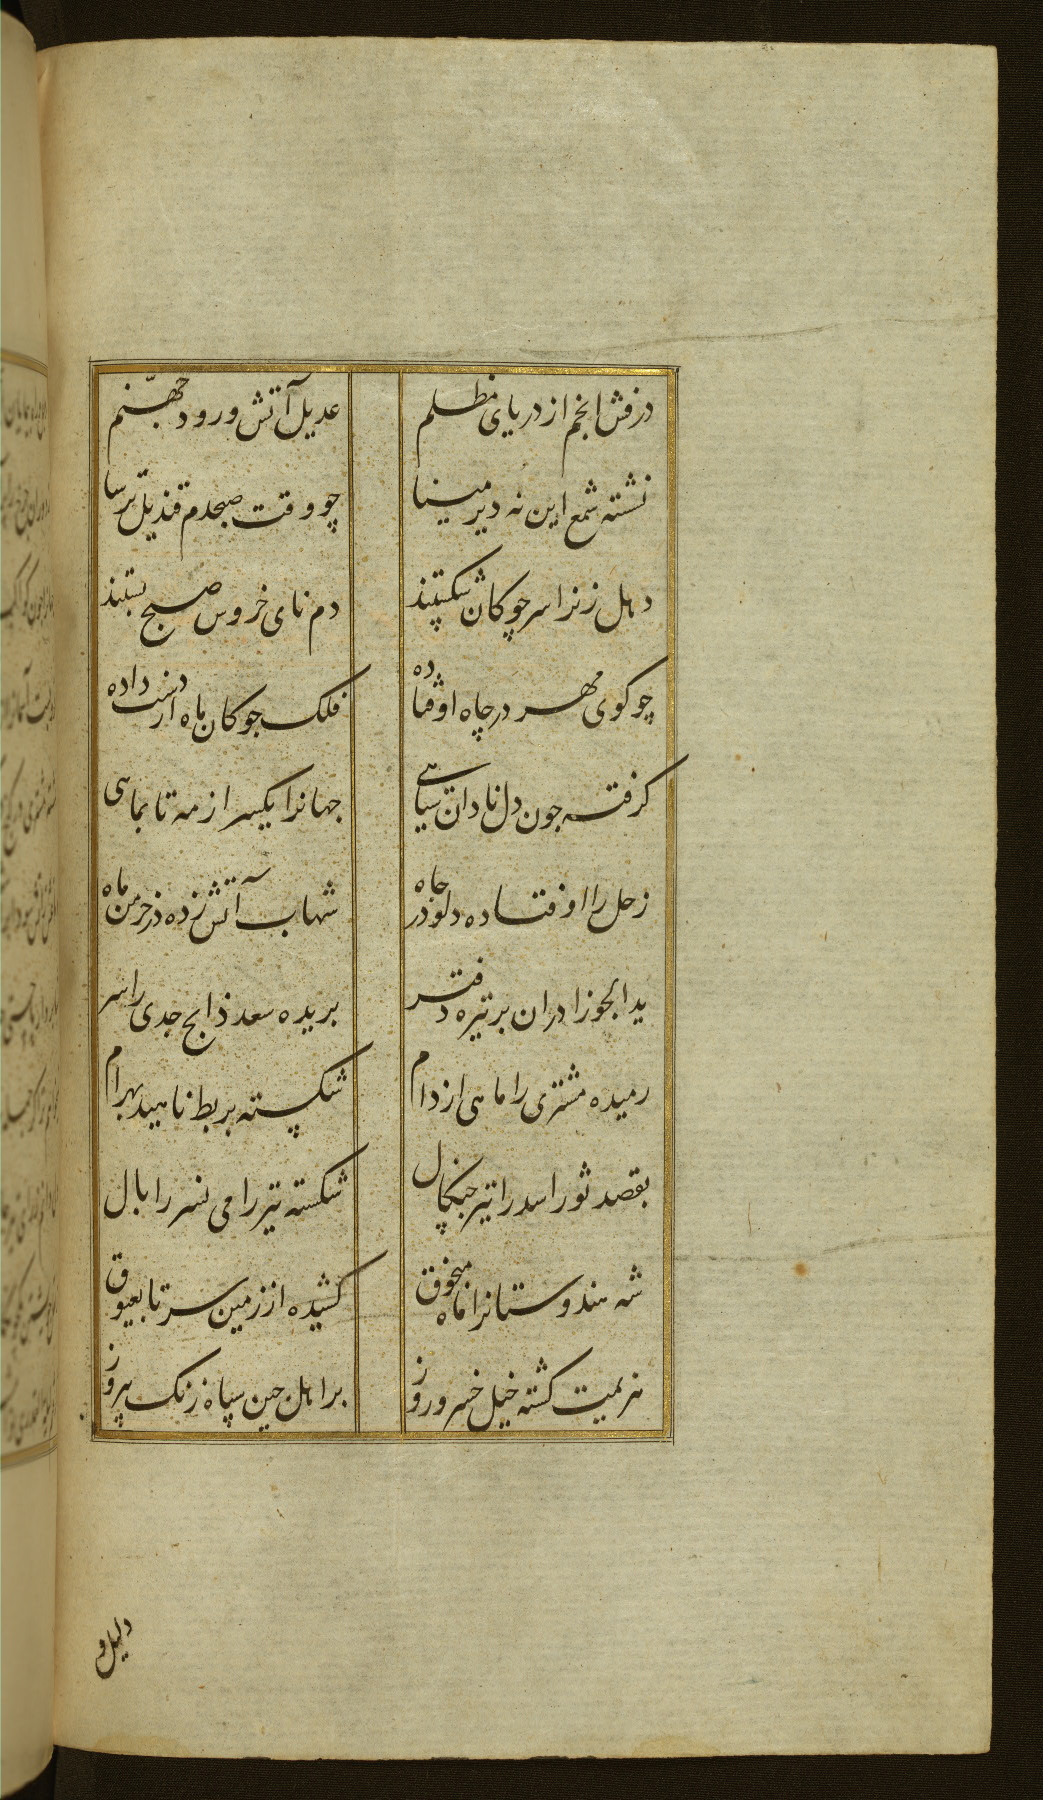 درفش انجم از دریای مظلم عدیل آتش و رود جهنّم
نشته شمع این نه دیر مینا چو وقت صبحدم قندیل ترسا
دهل زنرا سر چوکان شکستند دم نای خروس صبح بستند
چو کوی مهر در چاه اوفتاده فلک چوکان ماه از دست داده
کرفته جون دل نادان سیاهی جهانرا یکسر از مه تا بماهی
زحل را اوفتاده دلو در جاه شهاب آتش زده در خرمن ماه
ید الجوزا دران بر تیره دفتر بریده سعد ذابح جدی را سر
رمیده مشتری را ماهی از دام شکسته بربط ناهید بهرام
بقصد ثور اسد را تیز چنکال شکسته تیر رامی نسر را بال
شه هندوستانرا ماه منجوق کشیده از زمین سر تا بعیوق
هزیمت کشته خیل خسرو روز بر اهل چین سپاه زنک پیروز
دلیل و